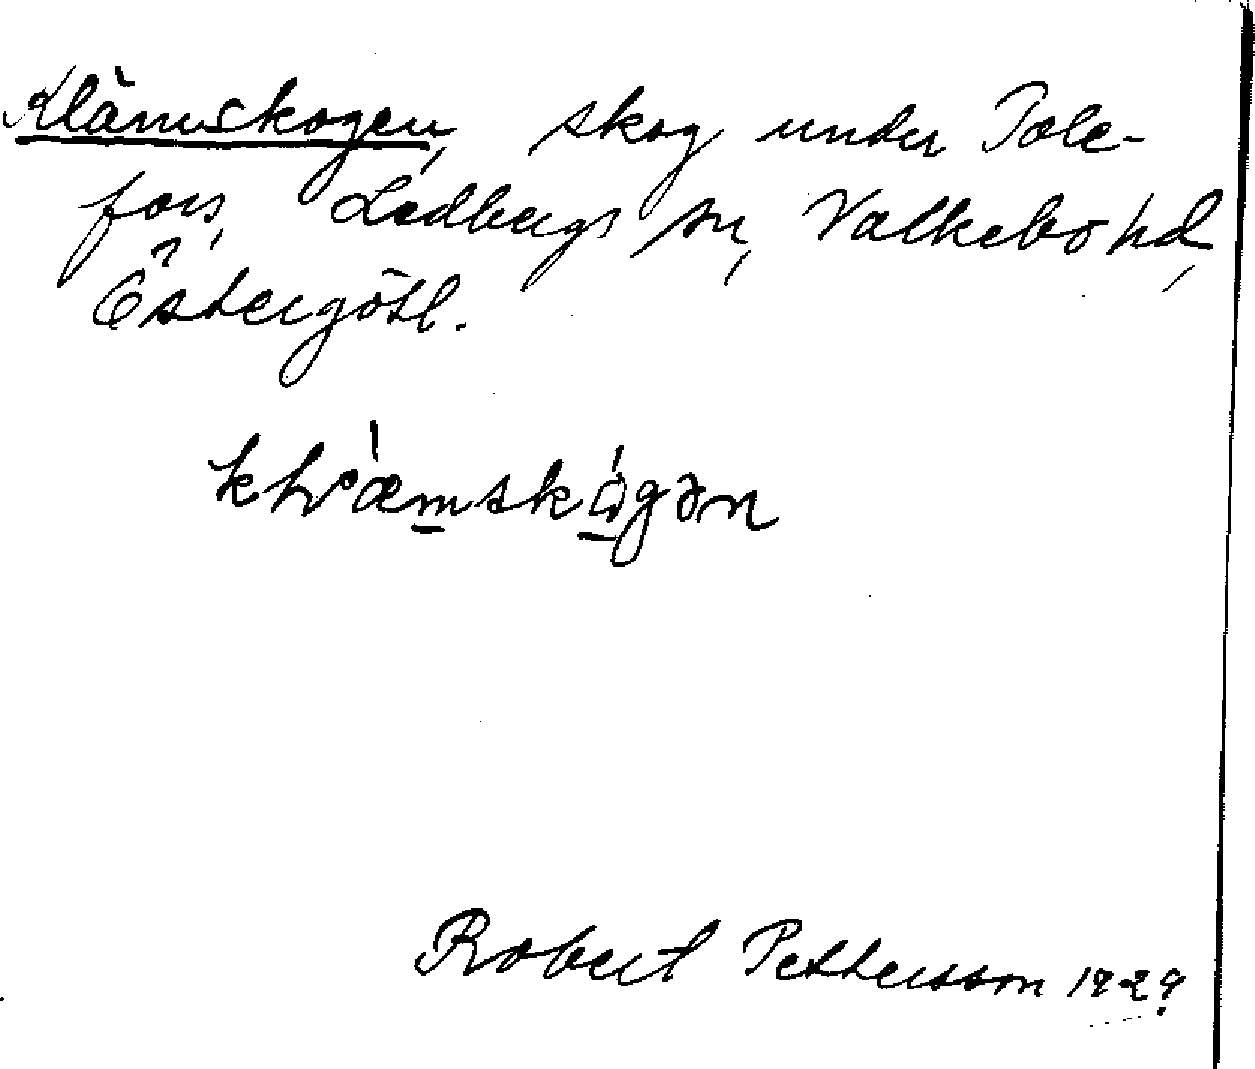 Klämskogen, skog under Tole-
fors, Ledbergs sn, Valkebo hd,
Östergötl.
Robert Pettersson 1929